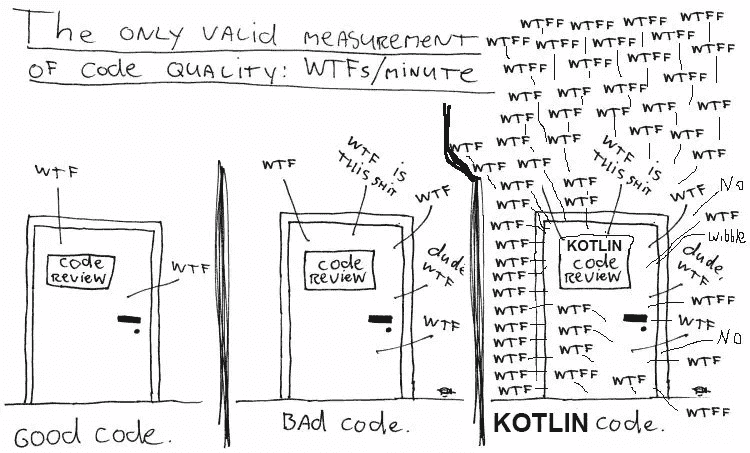 The ONLY VALID MEASUREMENT
OF Code QUALITY: WTFs/MINUTE
WTF
Code
REVIEW
WTF
GOOD Code.
WTF
WTF is
THIS SHIT
WTF
Code
REVIEW
dude,
WTF
WTF
BAd Code.
WTFF WTFF WTFF WTFF
WTFF WTFF WTFF WTFF WTFF
WTFF WTFF WTFF
WTFF
WTF WTFF WTFF
WTF WTF
WTF WTF WTF
WTF WTF
WTF WTF WTF
WTF
WTF WTF
WTF is
THIS SHIT
WTF WTF
WTF No
WTF WTF
WTF WTF
wibble
KOTLIN
Code
REVIEW
WTF
dude,
WTF
WTF
WTF
WTF
WTFF
WTF WTF
WTF
WTF WTF
No
WTF WTF
WTF
WTF WTFF WTF
WTF
WTFF
KOTLIN Code.